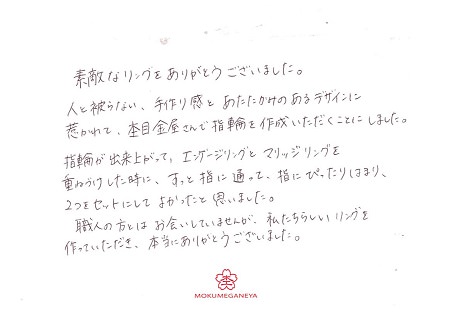 素敵なリングをありがとうございました。
人と被らない、手作り感とあたたかみのあるデザインに
惹かれて、杢目金屋さんで指輪を作成いただくことにしました。
指輪が出来上がって、エンゲージリングとマリッジリングを
重ねづけした時に、すっと指に通って、指にぴったりはまり、
2つをセットにしてよかったと思いました。
職人の方とはお会いしていませんが、私たちらしいリングを
作っていただき、本当にありがとうございました。
杢
MOKUMEGANEYA